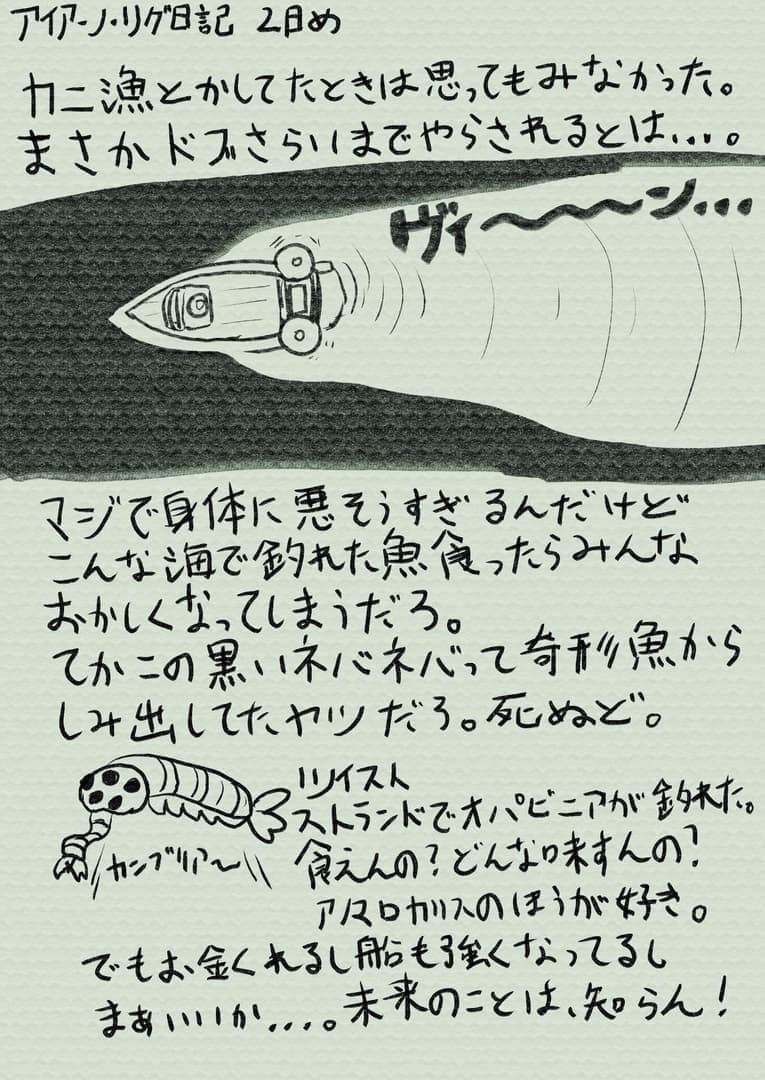 アイアーノ・リグ日記 2日め
カニ漁とかしてたときは思ってもみなかった。
まさかドブさらいまでやらされるとは....。
ヴィ〜〜〜ン...
マジで身体に悪そうすぎるんだけど
こんな海で釣れた魚食ったらみんな
おかしくなってしまうだろ。
てかこの黒いネバネバって奇形魚から
しみ出してたヤツだろ。死ぬど。
ツイスト
ストランドでオパビニアが釣れた。
食えんの?どんな味すんの?
アノマロカリスのほうが好き。
カンブリアー
でもお金くれるし船も強くなってるし
まぁいいか....。未来のことは、知らん!